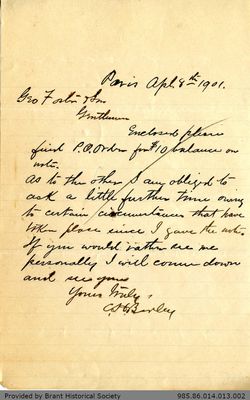 Paris Apl 8th 1901.
Geo Foster & Son
Gentlemen
Enclosed please
find P.O. Order for $10 balance on
note.
As to the other I am obliged to
ask a little further time owing
to certain circumstances that have
taken place since I gave the note.
If you would rather see me
personally I will come down
and see you
Yours truly,
Provided by Brant Historical Society
985.86.014.013.002